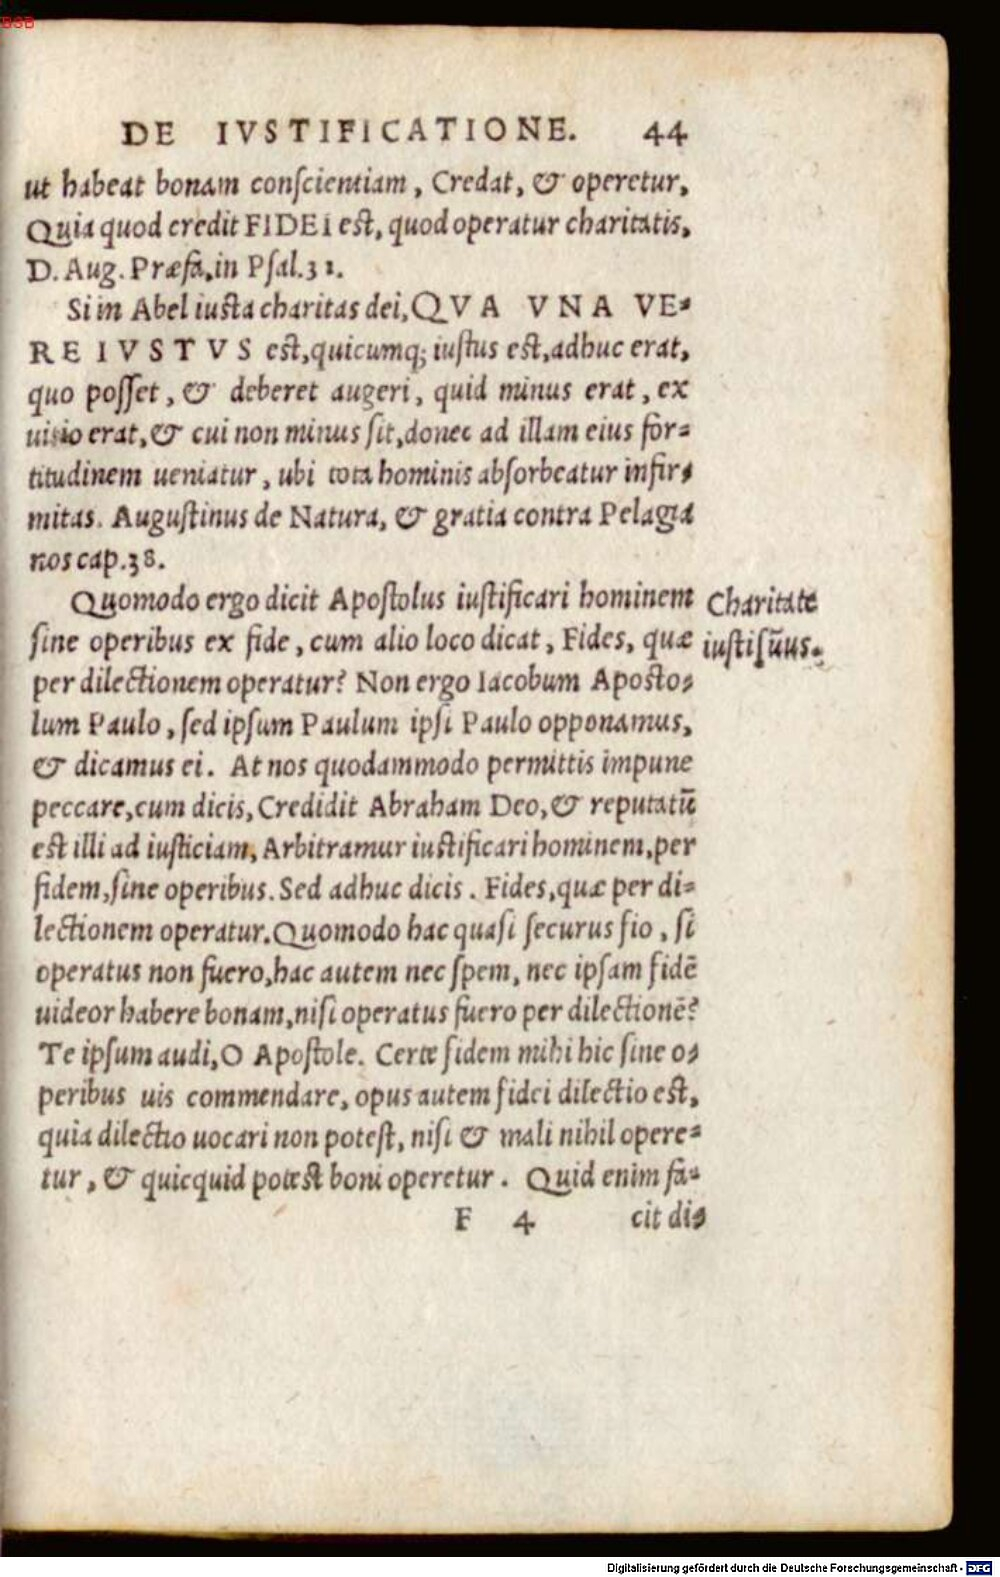 BSB
DE IVSTIFICATIONE. 44
ut habeat bonam conſcientiam, Credat, & operetur,
Quia quod credit FIDEI eſt, quod operatur charitatis,
D. Aug. Præfa, in Pſal.31.
Si in Abel iuſta charitas dei, QVA VNA VE-
RE IVSTVS eſt, quicumq; iuſtus eſt, adhuc erat,
quo poſſet, & deberet augeri, quid minus erat, ex
uitio erat, & cui non minus ſit, donec ad illam eius for-
titudinem ueniatur, ubi tota hominis abſorbeatur infir-
mitas. Auguſtinus de Natura, & gratia contra Pelagia
nos cap.38.
Quomodo ergo dicit Apoſtolus iuſtificari hominem
ſine operibus ex fide, cum alio loco dicat, Fides, quæ
per dilectionem operatur? Non ergo Iacobum Apoſto-
lum Paulo, ſed ipſum Paulum ipſi Paulo opponamus,
& dicamus ei. At nos quodammodo permittis impune
peccare, cum dicis, Credidit Abraham Deo, & reputatū
eſt illi ad iuſticiam, Arbitramur iuſtificari hominem, per
fidem, ſine operibus. Sed adhuc dicis. Fides, quæ per di-
lectionem operatur. Quomodo hac quaſi ſecurus fio, ſi
operatus non fuero, hac autem nec ſpem, nec ipſam fidē
uideor habere bonam, niſi operatus fuero per dilectionē?
Te ipſum audi, O Apoſtole. Certe fidem mihi hic ſine o-
peribus uis commendare, opus autem fidei dilectio eſt,
quia dilectio uocari non poteſt, niſi & mali nihil opere-
tur, & quicquid poteſt boni operetur. Quid enim fa-
F 4 cit di-
Charitate
iuſtiſūus.
Digitalisierung gefördert durch die Deutsche Forschungsgemeinschaft - DFG